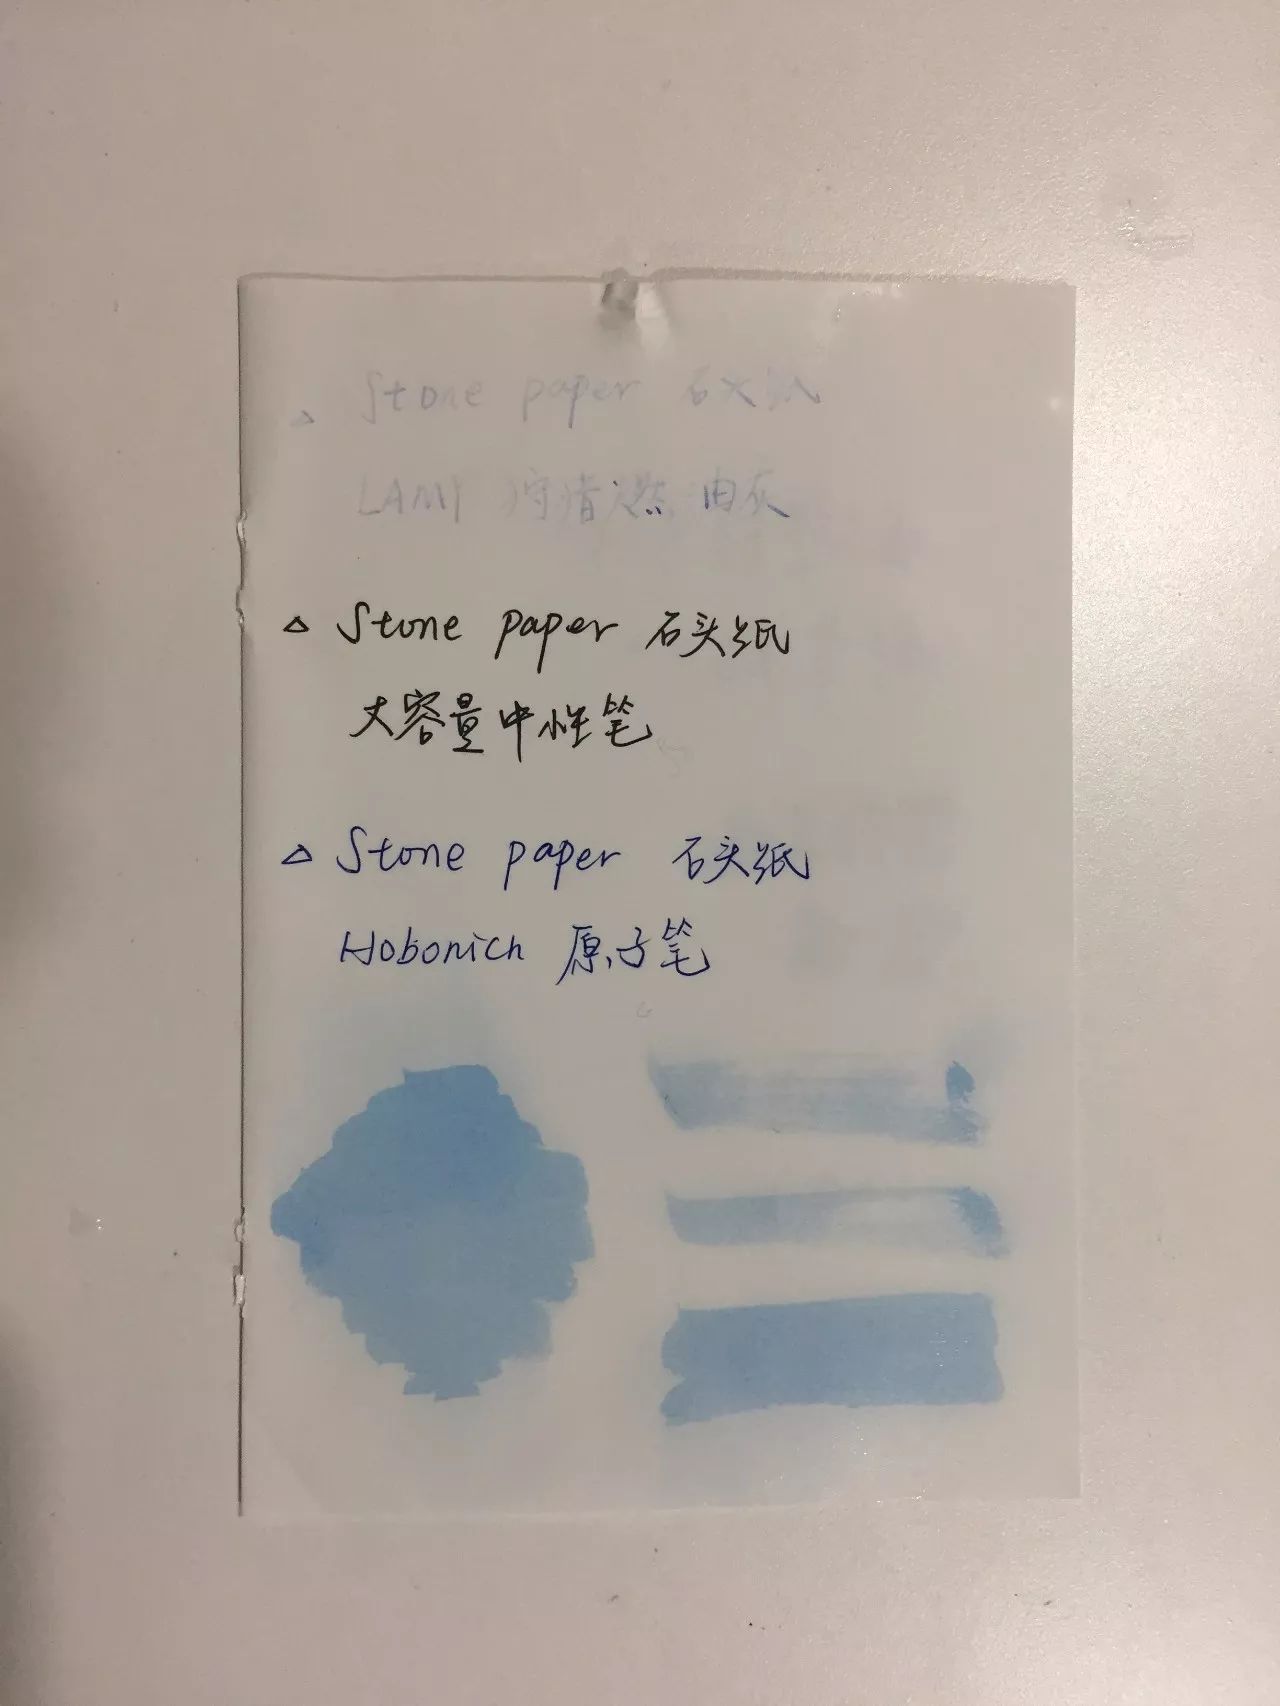 △ Stone paper 石头纸
LAMY 狩猎
△ Stone paper 石头纸
大容量中性笔
△ Stone paper 石头纸
Hobonich 原子笔